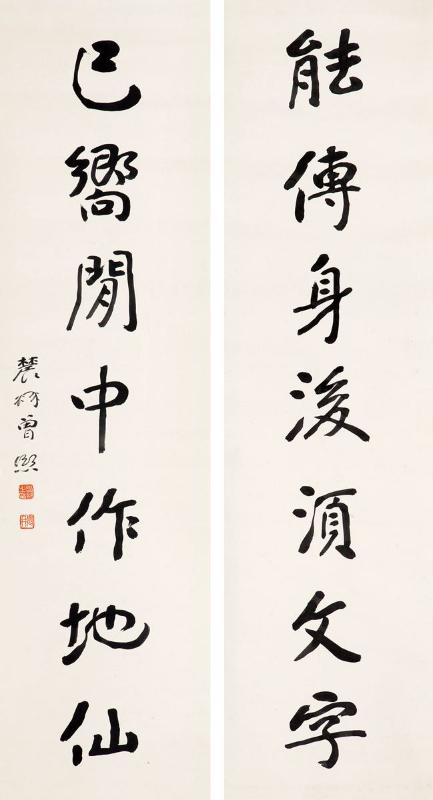 能傳身後須文字
已嚮閒中作地仙
農髯曾熙